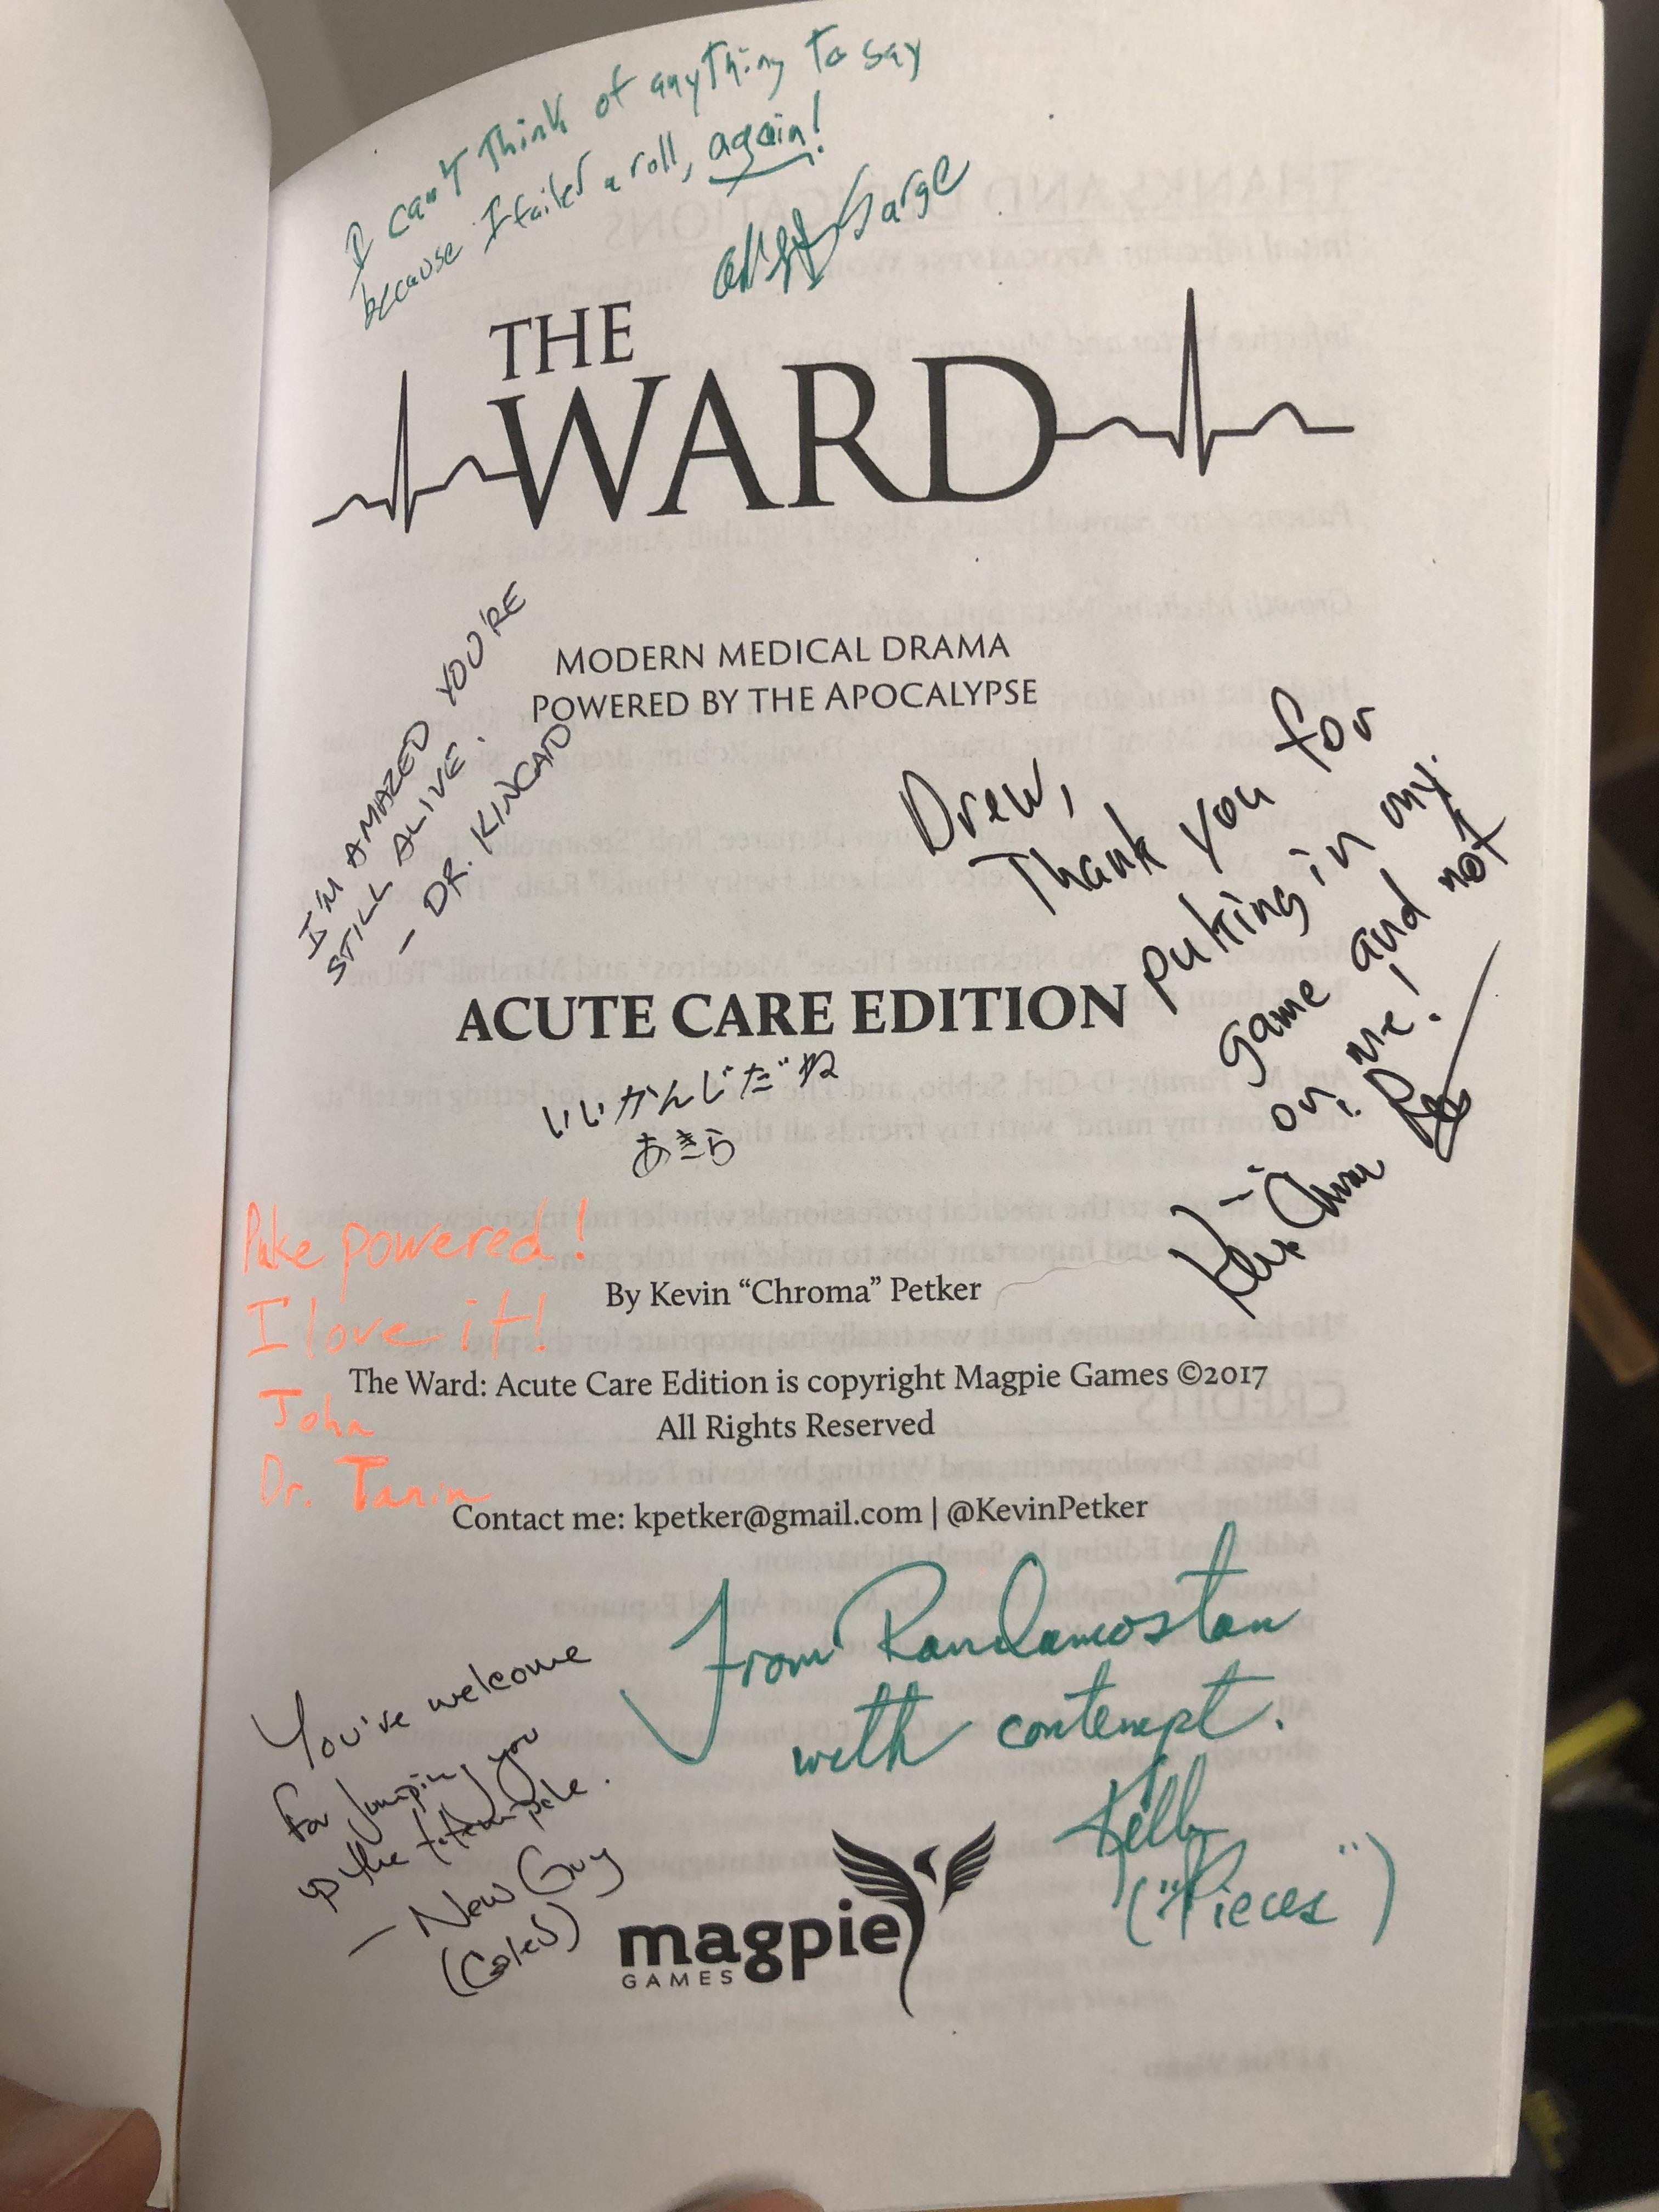 I can't think of anything to say
because I failed a roll, again!
Sarge
THE
WARD
MODERN MEDICAL DRAMA
POWERED BY THE APOCALYPSE
I'M AMAZED YOU'RE
STILL ALIVE.
- DR. KINCAID
Drew,
Thank you for
puking in my
game and not
on me!
ACUTE CARE EDITION
いいかんじだね
あきら
Puke powered!
I love it!
John
Dr. Tanin
By Kevin “Chroma” Petker
The Ward: Acute Care Edition is copyright Magpie Games ©2017
All Rights Reserved
Contact me: kpetker@gmail.com | @KevinPetker
From Randamostan
with contempt.
Kelly
("Pieces")
You've welcome
for jumping you
up the totem pole.
- New Guy
(Caleb)
magpie
GAMES